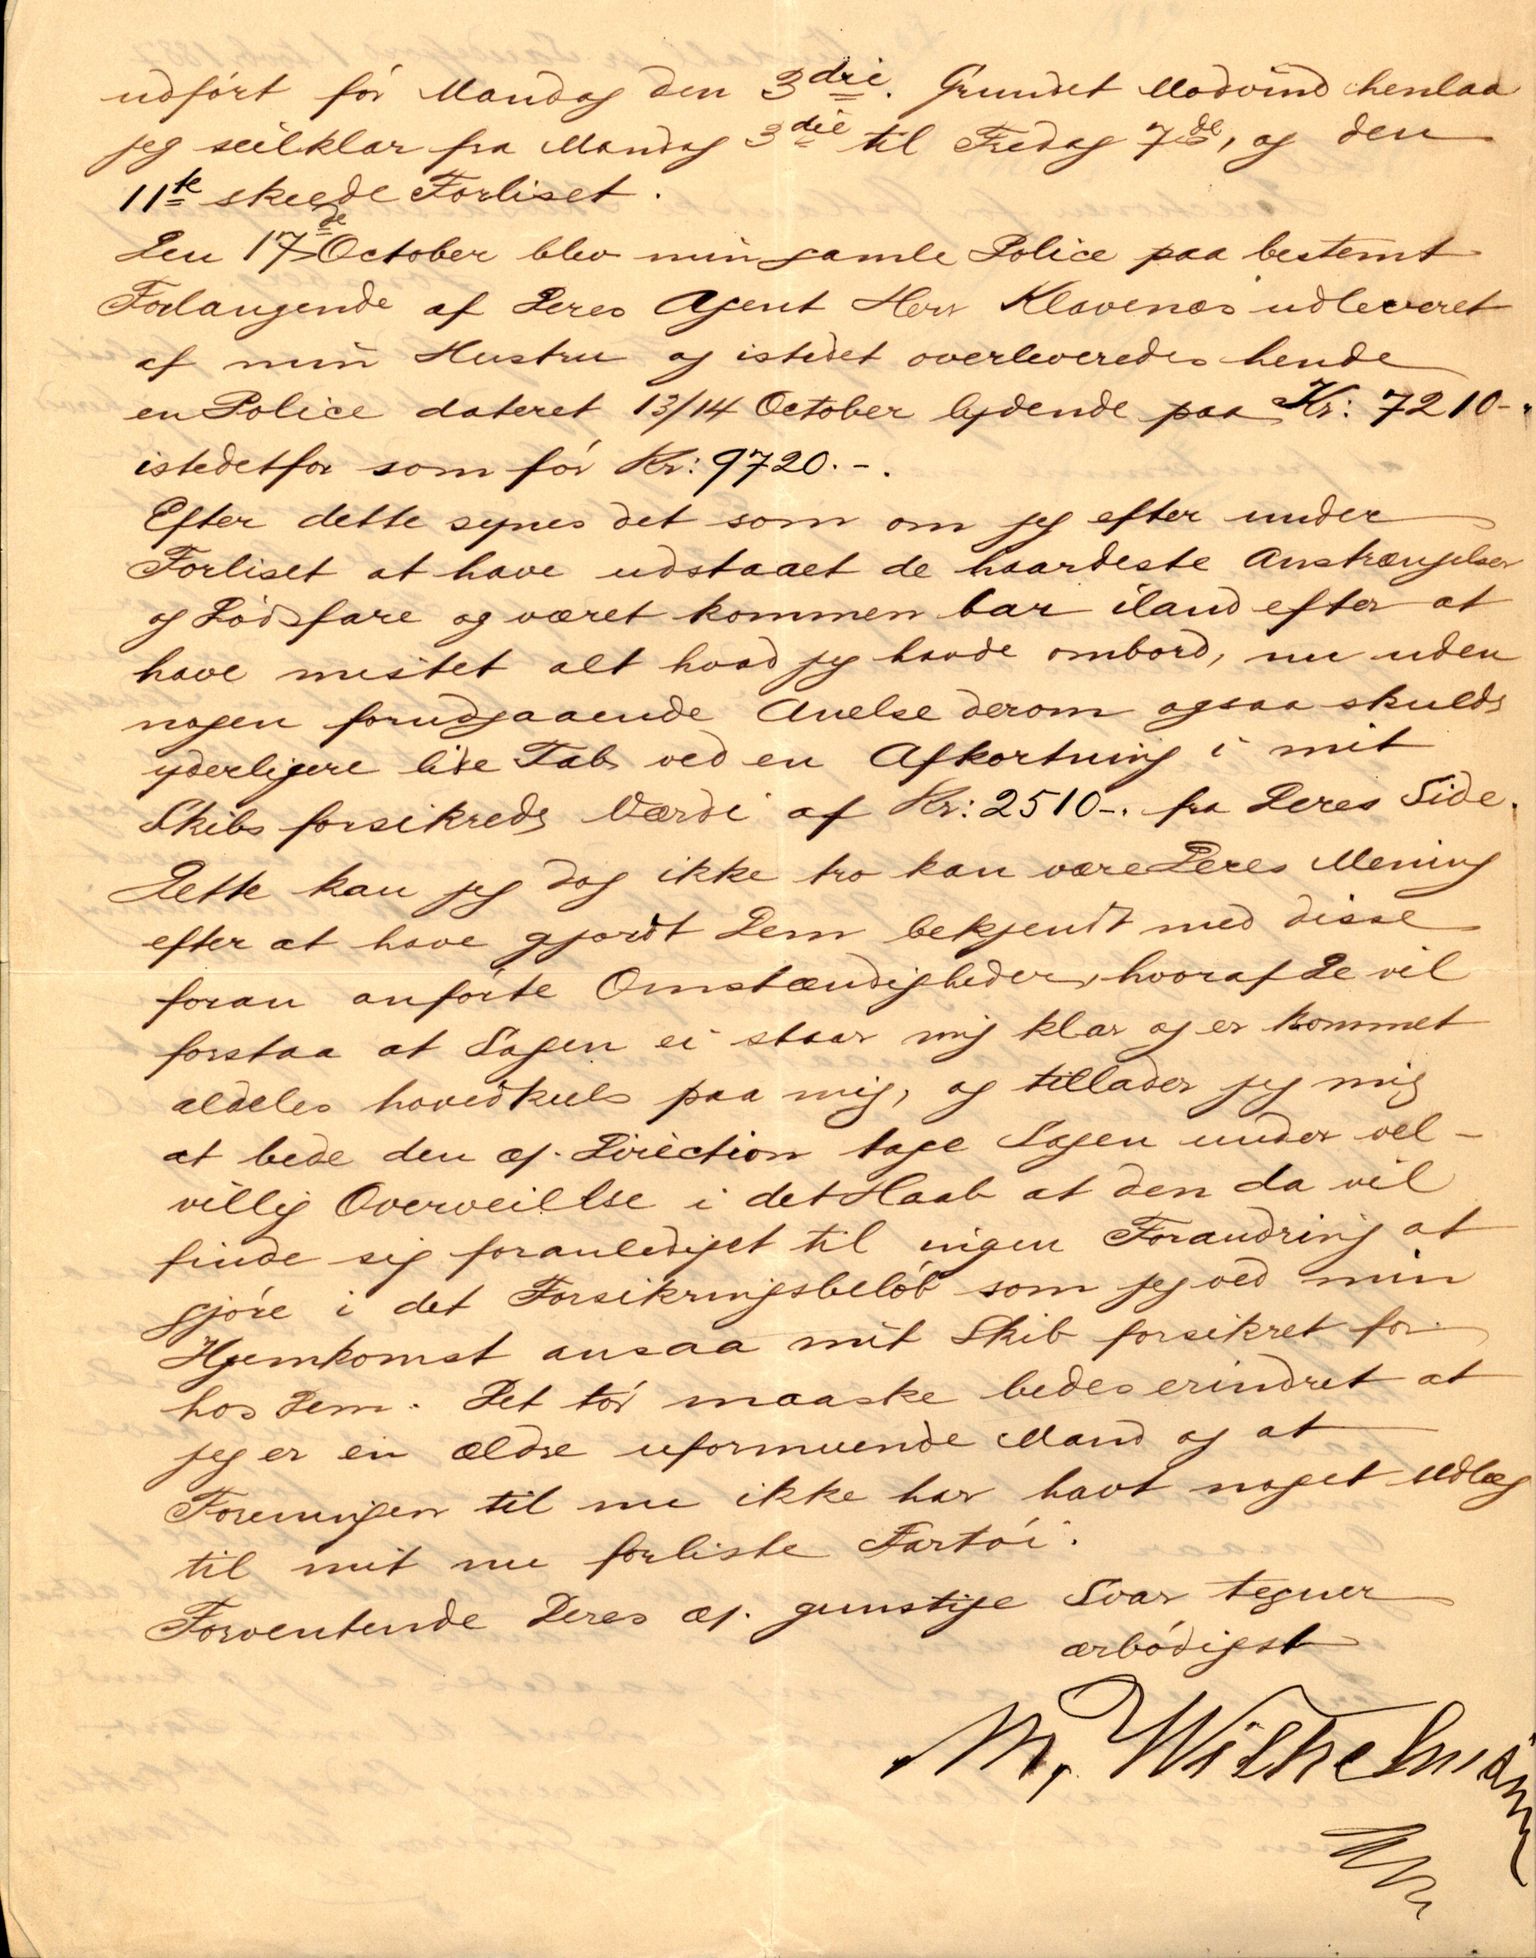 udført før Mandag den 3die. Grundet Modvind henlaa
jeg seilklar fra Mandag 3die til Fredag 7de, og den
11te skeede Forliset.
Den 17de October blev min gamle Police paa bestemt
Forlangende af Deres Agent Herr Klavenæs udleveret
af min Hustru og istedet overleveredes hende
en Police dateret 13/14 October lydende paa Kr: 7210-.
istedetfor som før Kr: 9720.-.
Efter dette synes det som om jeg efter under
Forliset at have udstaaet de haardeste Anstrængelser
og Dødsfare og været kommen bar iland efter at
have mistet alt hvad jeg havde ombord, nu uden
nogen forudgaaende Anelse derom ogsaa skulde
yderligere lide Tab ved en Afkortning i mit
Skibs forsikrede Værdi af Kr: 2510-. fra Deres Side.
Dette kan jeg dog ikke tro kan være Deres Mening
efter at have gjordt Dem bekjendt med disse
foran anførte Omstændigheder, hvoraf De vil
forstaa at Sagen ei staar mig klar og er kommet
aldeles hovedkuls paa mig, og tillader jeg mig
at bede den ær. Direction tage Sagen under vel-
villig Overveillse i det Haab at den da vil
finde sig foranlediget til ingen Forandring at
gjøre i det Forsikringsbeløb som jeg ved min
Hjemkomst ansaa mit Skib forsikret for
hos Dem. Det tør maaske bedes erindret at
jeg er en ældre uformuende Mand og at
Foreningen til nu ikke har havt noget Udlæg
til mit nu forliste Fartøi.
Forventende Deres ær. gunstige Svar tegner
ærbødigst
M. Wilhelmsen